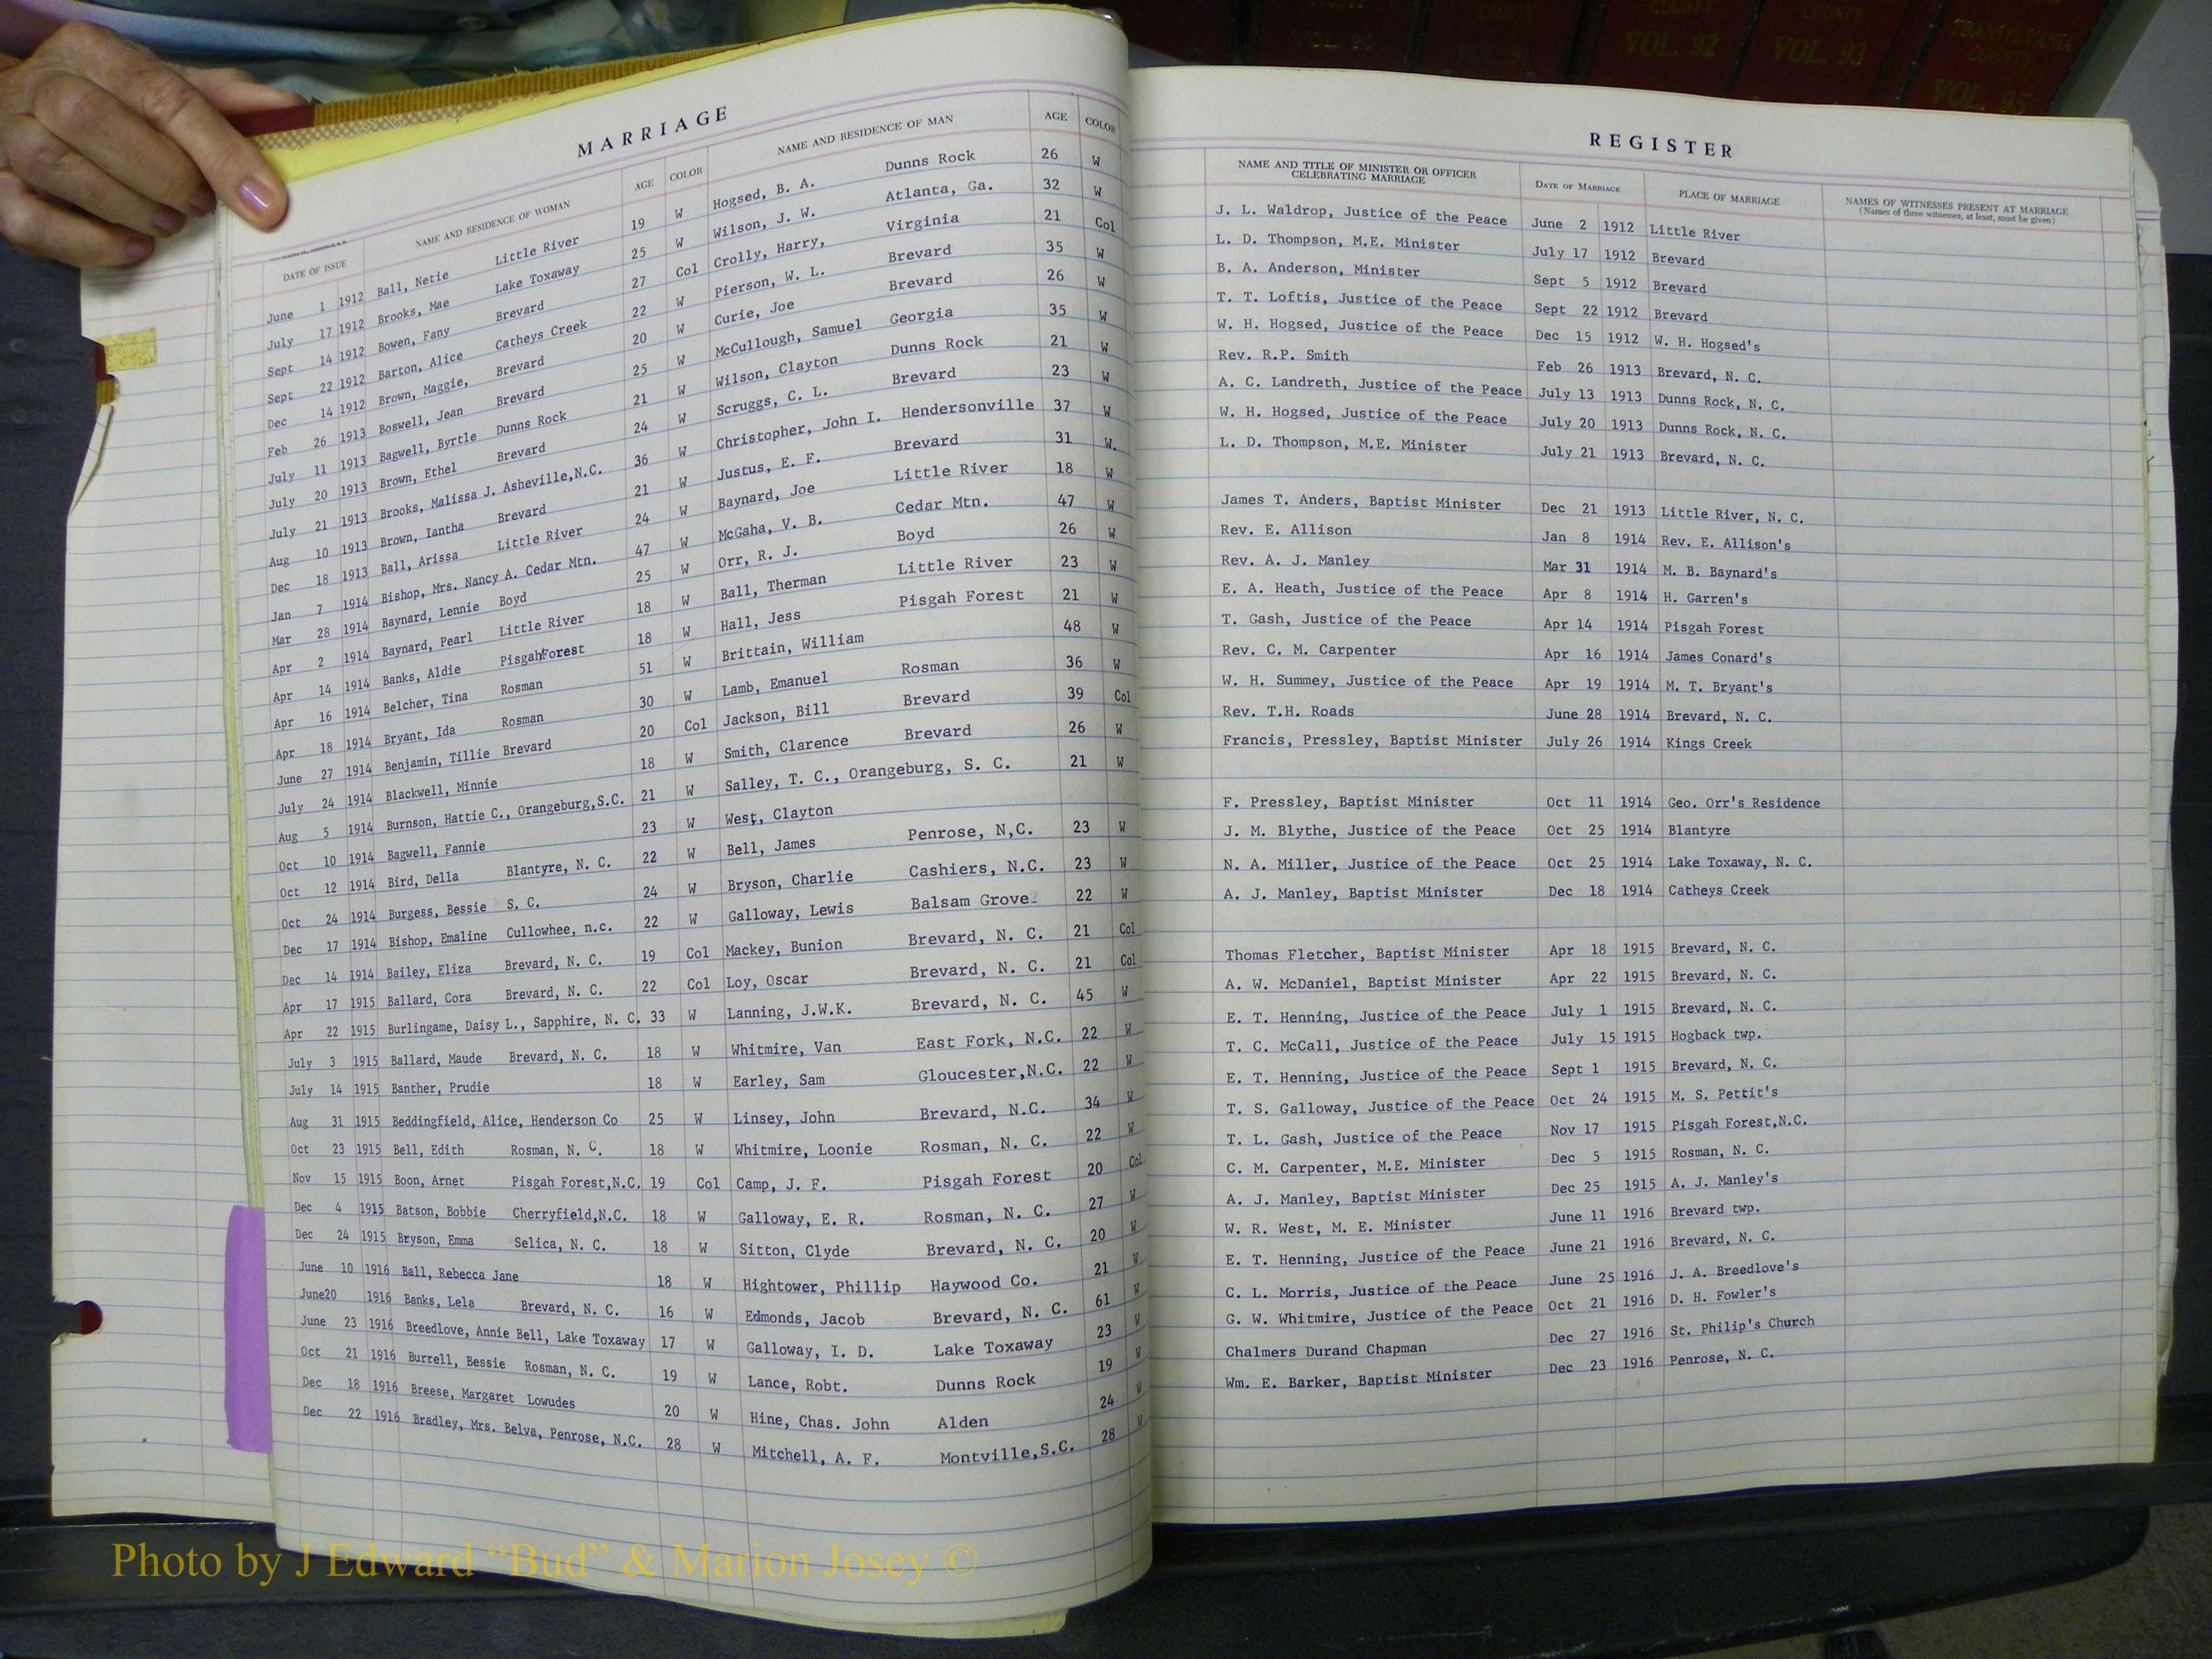 COUNTY VOL. 92
COUNTY VOL. 93
TRANSYLVANIA COUNTY VOL. 95
MARRIAGE
DATE OF ISSUE NAME AND RESIDENCE OF WOMAN AGE COLOR NAME AND RESIDENCE OF MAN AGE COLOR
June 1 1912 Ball, Netie Little River 19 W Hogsed, B. A. Dunns Rock 26 W
July 17 1912 Brooks, Mae Lake Toxaway 25 W Wilson, J. W. Atlanta, Ga. 32 W
Sept 14 1912 Bowen, Fany Brevard 27 Col Crolly, Harry, Virginia 21 Col
Sept 22 1912 Barton, Alice Catheys Creek 22 W Pierson, W. L. Brevard 35 W
Dec 14 1912 Brown, Maggie, Brevard 20 W Curie, Joe Brevard 26 W
Feb 26 1913 Boswell, Jean Brevard 25 W McCullough, Samuel Georgia 35 W
July 11 1913 Bagwell, Byrtle Dunns Rock 21 W Wilson, Clayton Dunns Rock 21 W
July 20 1913 Brown, Ethel Brevard 24 W Scruggs, C. L. Brevard 23 W
July 21 1913 Brooks, Malissa J. Asheville,N.C. 36 W Christopher, John I. Hendersonville 37 W
Aug 10 1913 Brown, Iantha Brevard 21 W Justus, E. F. Brevard 31 W.
Dec 18 1913 Ball, Arissa Little River 24 W Baynard, Joe Little River 18 W
Jan 7 1914 Bishop, Mrs. Nancy A. Cedar Mtn. 47 W McGaha, V. B. Cedar Mtn. 47 W
Mar 28 1914 Baynard, Lennie Boyd 25 W Orr, R. J. Boyd 26 W
Apr 2 1914 Baynard, Pearl Little River 18 W Ball, Therman Little River 23 W
Apr 14 1914 Banks, Aldie Pisgah/Forest 18 W Hall, Jess Pisgah Forest 21 W
Apr 16 1914 Belcher, Tina Rosman 51 W Brittain, William 48 W
Apr 18 1914 Bryant, Ida Rosman 30 W Lamb, Emanuel Rosman 36 W
June 27 1914 Benjamin, Tillie Brevard 20 Col Jackson, Bill Brevard 39 Col
July 24 1914 Blackwell, Minnie 18 W Smith, Clarence Brevard 26 W
Aug 5 1914 Burnson, Hattie C., Orangeburg,S.C. 21 W Salley, T. C., Orangeburg, S. C. 21 W
Oct 10 1914 Bagwell, Fannie 23 W West, Clayton
Oct 12 1914 Bird, Della Blantyre, N. C. 22 W Bell, James Penrose, N,C. 23 W
Oct 24 1914 Burgess, Bessie S. C. 24 W Bryson, Charlie Cashiers, N.C. 23 W
Dec 17 1914 Bishop, Emaline Cullowhee, n.c. 22 W Galloway, Lewis Balsam Grove 22 W
Dec 14 1914 Bailey, Eliza Brevard, N. C. 19 Col Mackey, Bunion Brevard, N. C. 21 Col
Apr 17 1915 Ballard, Cora Brevard, N. C. 22 Col Loy, Oscar Brevard, N. C. 21 Col
Apr 22 1915 Burlingame, Daisy L., Sapphire, N. C. 33 W Lanning, J.W.K. Brevard, N. C. 45 W
July 3 1915 Ballard, Maude Brevard, N. C. 18 W Whitmire, Van East Fork, N.C. 22 W
July 14 1915 Banther, Prudie 18 W Earley, Sam Gloucester,N.C. 22 W
Aug 31 1915 Beddingfield, Alice, Henderson Co 25 W Linsey, John Brevard, N.C. 34 W
Oct 23 1915 Bell, Edith Rosman, N. C. 18 W Whitmire, Loonie Rosman, N. C. 22 W
Nov 15 1915 Boon, Arnet Pisgah Forest,N.C. 19 Col Camp, J. F. Pisgah Forest 20 Col
Dec 4 1915 Batson, Bobbie Cherryfield,N.C. 18 W Galloway, E. R. Rosman, N. C. 27 W
Dec 24 1915 Bryson, Emma Selica, N. C. 18 W Sitton, Clyde Brevard, N. C. 20 W
June 10 1916 Ball, Rebecca Jane 18 W Hightower, Phillip Haywood Co. 21 W
June20 1916 Banks, Lela Brevard, N. C. 16 W Edmonds, Jacob Brevard, N. C. 61 W
June 23 1916 Breedlove, Annie Bell, Lake Toxaway 17 W Galloway, I. D. Lake Toxaway 23 W
Oct 21 1916 Burrell, Bessie Rosman, N. C. 19 W Lance, Robt. Dunns Rock 19 W
Dec 18 1916 Breese, Margaret Lowudes 20 W Hine, Chas. John Alden 24 W
Dec 22 1916 Bradley, Mrs. Belva, Penrose, N.C. 28 W Mitchell, A. F. Montville,S.C. 28 W
REGISTER
NAME AND TITLE OF MINISTER OR OFFICER CELEBRATING MARRIAGE DATE OF MARRIAGE PLACE OF MARRIAGE NAMES OF WITNESSES PRESENT AT MARRIAGE
(Names of three witnesses, at least, must be given)
J. L. Waldrop, Justice of the Peace June 2 1912 Little River
L. D. Thompson, M.E. Minister July 17 1912 Brevard
B. A. Anderson, Minister Sept 5 1912 Brevard
T. T. Loftis, Justice of the Peace Sept 22 1912 Brevard
W. H. Hogsed, Justice of the Peace Dec 15 1912 W. H. Hogsed's
Rev. R.P. Smith Feb 26 1913 Brevard, N. C.
A. C. Landreth, Justice of the Peace July 13 1913 Dunns Rock, N. C.
W. H. Hogsed, Justice of the Peace July 20 1913 Dunns Rock, N. C.
L. D. Thompson, M.E. Minister July 21 1913 Brevard, N. C.
James T. Anders, Baptist Minister Dec 21 1913 Little River, N. C.
Rev. E. Allison Jan 8 1914 Rev. E. Allison's
Rev. A. J. Manley Mar 31 1914 M. B. Baynard's
E. A. Heath, Justice of the Peace Apr 8 1914 H. Garren's
T. Gash, Justice of the Peace Apr 14 1914 Pisgah Forest
Rev. C. M. Carpenter Apr 16 1914 James Conard's
W. H. Summey, Justice of the Peace Apr 19 1914 M. T. Bryant's
Rev. T.H. Roads June 28 1914 Brevard, N. C.
Francis, Pressley, Baptist Minister July 26 1914 Kings Creek
F. Pressley, Baptist Minister Oct 11 1914 Geo. Orr's Residence
J. M. Blythe, Justice of the Peace Oct 25 1914 Blantyre
N. A. Miller, Justice of the Peace Oct 25 1914 Lake Toxaway, N. C.
A. J. Manley, Baptist Minister Dec 18 1914 Catheys Creek
Thomas Fletcher, Baptist Minister Apr 18 1915 Brevard, N. C.
A. W. McDaniel, Baptist Minister Apr 22 1915 Brevard, N. C.
E. T. Henning, Justice of the Peace July 1 1915 Brevard, N. C.
T. C. McCall, Justice of the Peace July 15 1915 Hogback twp.
E. T. Henning, Justice of the Peace Sept 1 1915 Brevard, N. C.
T. S. Galloway, Justice of the Peace Oct 24 1915 M. S. Pettit's
T. L. Gash, Justice of the Peace Nov 17 1915 Pisgah Forest,N.C.
C. M. Carpenter, M.E. Minister Dec 5 1915 Rosman, N. C.
A. J. Manley, Baptist Minister Dec 25 1915 A. J. Manley's
W. R. West, M. E. Minister June 11 1916 Brevard twp.
E. T. Henning, Justice of the Peace June 21 1916 Brevard, N. C.
C. L. Morris, Justice of the Peace June 25 1916 J. A. Breedlove's
G. W. Whitmire, Justice of the Peace Oct 21 1916 D. H. Fowler's
Chalmers Durand Chapman Dec 27 1916 St. Philip's Church
Wm. E. Barker, Baptist Minister Dec 23 1916 Penrose, N. C.
Photo by J Edward “Bud” & Marion Josey ©